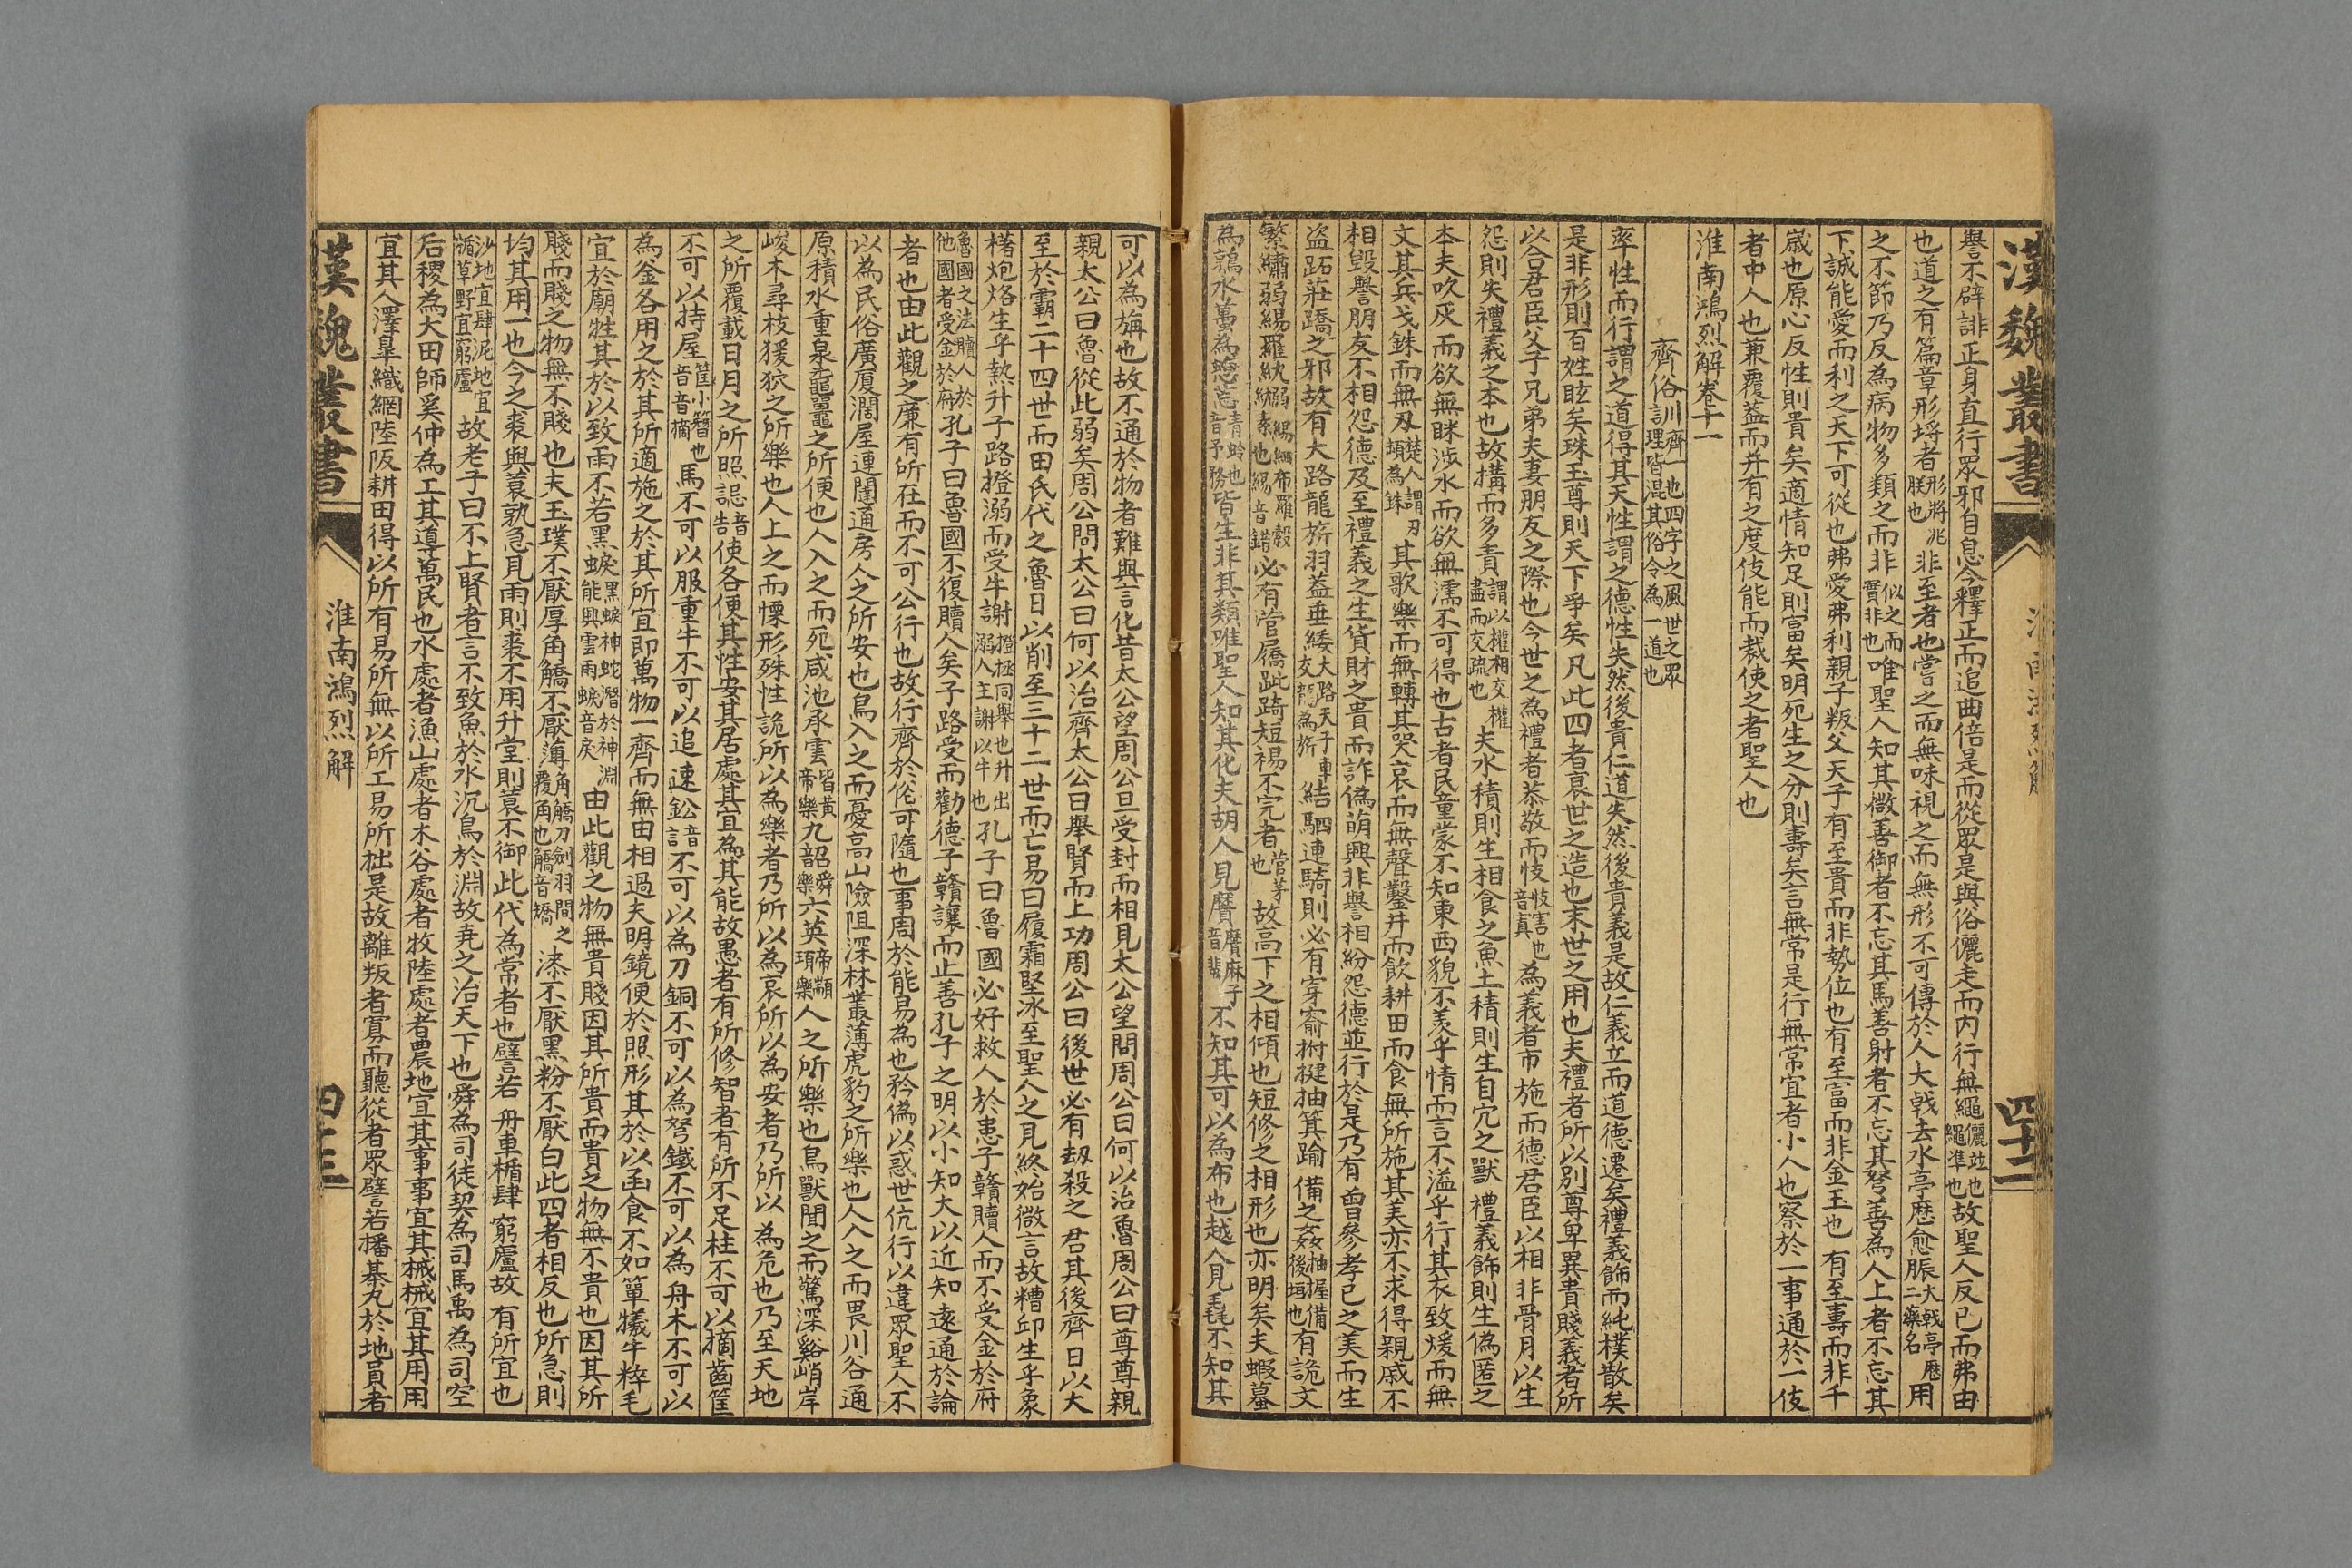 漢魏叢書
四十二
譽不辟誹正身直行眾邪自息今釋正而追曲倍是而從眾是與俗儷走而內行無繩儷竝也繩準也故聖人反已而弗由
也道之有篇章形埒者形將兆朕也非至者也嘗之而無味視之而無形不可傳於人大戟去水亭歷愈脹大戟亭歷二藥名用
之不節乃反為病物多類之而非似之而實非也唯聖人知其微善御者不忘其馬善射者不忘其弩善為人上者不忘其
下誠能愛而利之天下可從也弗愛弗利親子叛父天子有至貴而非勢位也有至富而非金玉也有至壽而非千
歲也原心反性則貴矣適情知足則富矣明死生之分則壽矣言無常是行無常宜者小人也察於一事通於一伎
者中人也兼覆葢而并有之度伎能而裁使之者聖人也
淮南鴻烈解卷十一
齊俗訓齊一也四字之風世之眾理皆混其俗令為一道也
率性而行謂之道得其天性謂之德性失然後貴仁道失然後貴義是故仁義立而道德遷矣禮義飾而純樸散矣
是非形則百姓眩矣珠玉尊則天下爭矣凡此四者衰世之造也末世之用也夫禮者所以別尊卑異貴賤義者所
以合君臣父子兄弟夫妻朋友之際也今世之為禮者恭敬而忮忮害也音寘為義者布施而德君臣以相非骨月以生
怨則失禮義之本也故搆而多責謂以權相交權盡而交疏也夫水積則生相食之魚土積則生自宂之獸禮義飾則生偽匿之
本夫吹灰而欲無眯涉水而欲無濡不可得也古者民童蒙不知東西貌不羨乎情而言不溢乎行其衣致煖而無
文其兵戈銖而無刄楚人謂刃頓為銖其歌樂而無轉其哭哀而無聲鑿井而飲耕田而食無所施其美亦不求得親戚不
相毀譽朋友不相怨德及至禮義之生貨財之貴而詐偽萌興非譽相紛怨德並行於是乃有曾參孝已之美而生
盗跖莊蹻之邪故有大路龍旂羽葢垂緌大路天子車交龍為旂結駟連騎則必有穿窬拊揵抽箕踰備之姦抽握備後垣也有詭文
繁繡弱緆羅紈弱緆細布羅縠紈素也緆音錯必有菅屩跐踦短褐不完者菅茅也故高下之相傾也短修之相形也亦明矣夫蝦蟇
為鶉水蠆為蟌忘青蛉也音予務皆生非其類唯聖人知其化夫胡人見黂黂麻子音蜚不知其可以為布也越人見毳不知其
可以為旃也故不通於物者難與言化昔太公望周公旦受封而相見太公望問周公曰何以治魯周公曰尊尊親
親太公曰魯從此弱矣周公問太公曰何以治齊太公曰舉賢而上功周公曰後世必有劫殺之君其後齊日以大
至於霸二十四世而田氏代之魯日以削至三十二世而亡易曰履霜堅冰至聖人之見終始微言故糟邱生乎象
櫡炮烙生乎熱升子路撜溺而受牛謝撜拯同舉也升出溺人主謝以牛也孔子曰魯國必好救人於患子贛贖人而不受金於府
魯國之法贖人於他國者受金於府孔子曰魯國不復贖人矣子路受而勸德子贛讓而止善孔子之明以小知大以近知遠通於論
者也由此觀之廉有所在而不可公行也故行齊於俗可隨也事周於能易為也矜偽以惑世伉行以違眾聖人不
以為民俗廣厦濶屋連闥通房人之所安也鳥入之而憂高山險阻深林叢薄虎豹之所樂也人入之而畏川谷通
原積水重泉黿鼉之所便也人入之而死咸池承雲皆黃帝樂九韶舜樂六英帝顓頊樂人之所樂也鳥獸聞之而驚深谿峭岸
峻木尋枝猨狖之所樂也人上之而慄形殊性詭所以為樂者乃所以為哀所以為安者乃所以為危也乃至天地
之所覆載日月之所照誋音告使各便其性安其居處其宜為其能故愚者有所修智者有所不足柱不可以摘齒筐
不可以持屋筐小簪也音音摘馬不可以服重牛不可以追速鈆音不可以為刀銅不可以為弩鐵不可以為舟木不可以
為釜各用之於其所適施之於其所宜即萬物一齊而無由相過夫明鏡便於照形其於以函食不如簞犧牛粹毛
宜於廟牲其於以致雨不若黑蜧黑蜧神蛇潛於神淵能興雲雨蜧音戾由此觀之物無貴賤因其所貴而貴之物無不貴也因其所
賤而賤之物無不賤也夫玉璞不厭厚角䚩不厭薄角䚩刀劍羽間之覆角也䚩音矯漆不厭黑粉不厭白此四者相反也所急則
均其用一也今之裘與蓑孰急見雨則裘不用升堂則蓑不御此代為常者也譬若舟車楯肆窮廬故有所宜也
沙地宜肆泥地宜楯草野宜窮廬故老子曰不上賢者言不致魚於水沉鳥於淵故堯之治天下也舜為司徒契為司馬禹為司空
后稷為大田師奚仲為工其導萬民也水處者漁山處者木谷處者牧陸處者農地宜其事事宜其械械宜其用用
宜其人澤皐織網陸阪耕田得以所有易所無以所工易所拙是故離叛者寡而聽從者眾譬若播棊丸於地員者
漢魏叢書
淮南鴻烈解
四十三